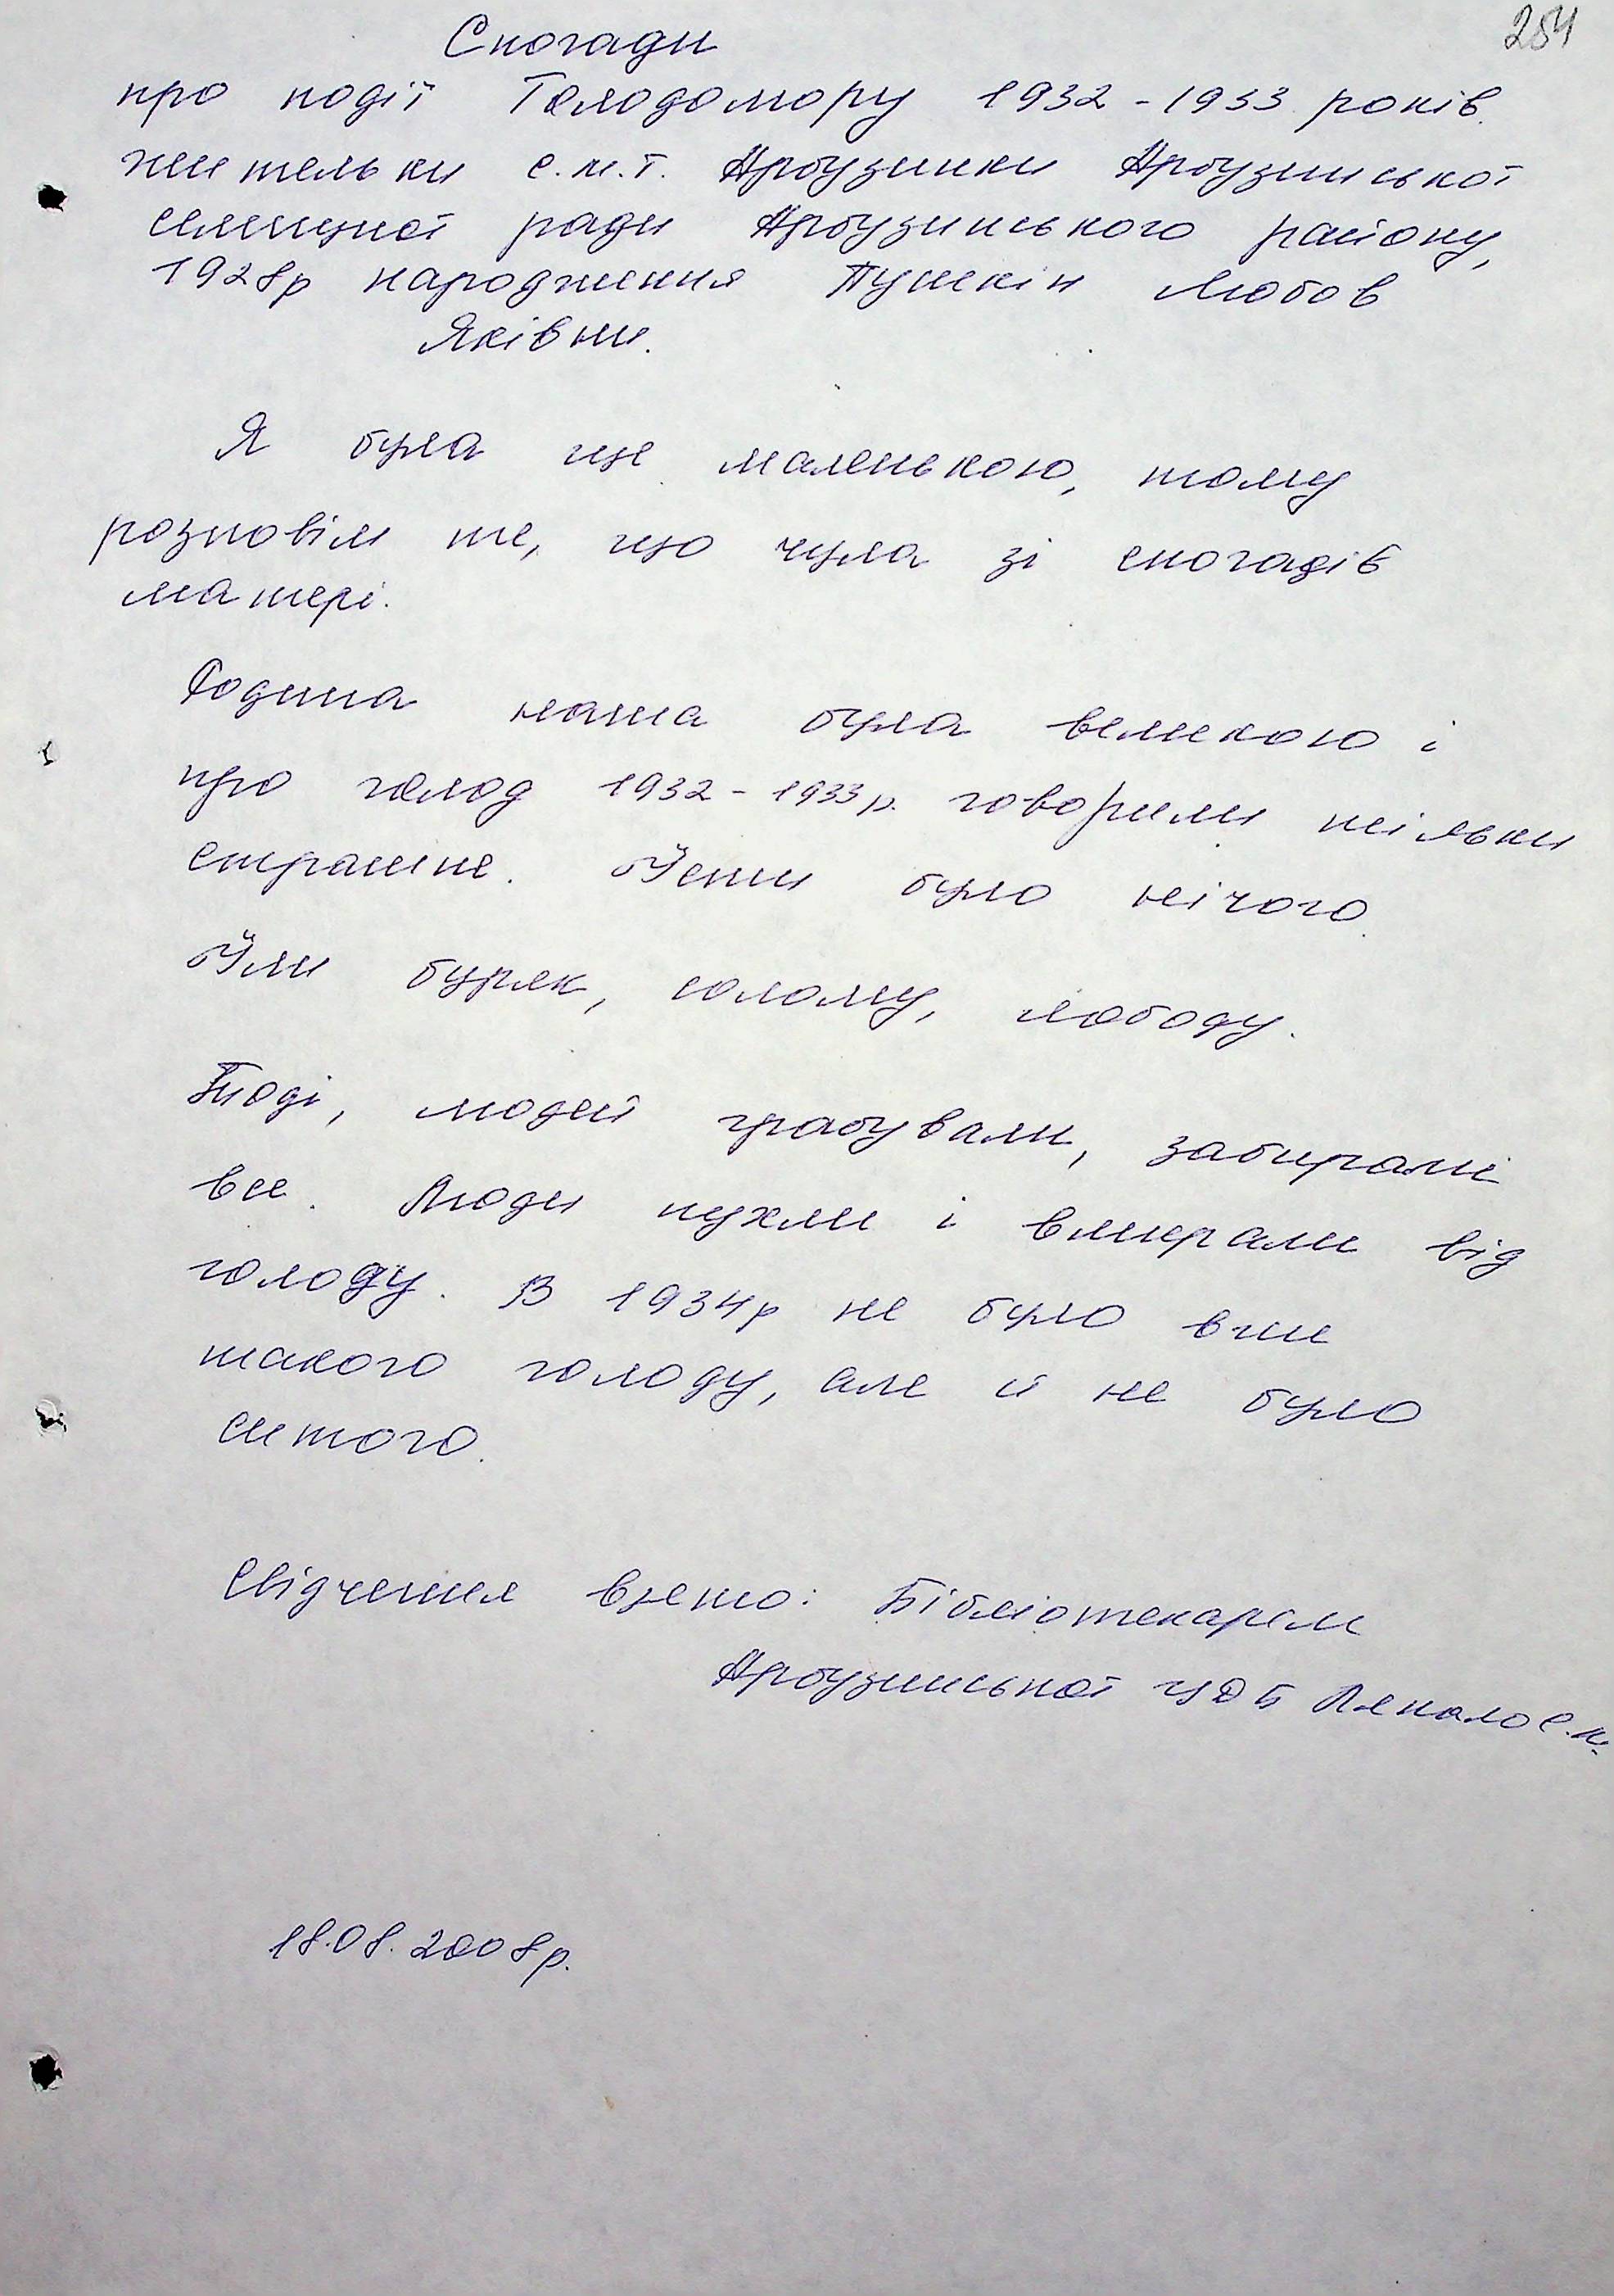 284
Спогади
про події Голодомору 1932 - 1933 років
жительки с.м.т. Арбузинки Арбузинської
селищної ради Арбузинського району,
1928р народження Пушкін Любов
Яківни.
Я була ще маленькою, тому
розповім те, що чула зі спогадів
матері.
Родина наша була великою і
про голод 1932 - 1933 р. говорили тільки
страшне. Їсти було нічого.
Їли буряк, солому, лободу.
Тоді, людей грабували, забирали
все. Люди пухли і вмирали від
голоду. В 1934р не було вже
такого голоду, але й не було
ситого.
Свідчення взято: Бібліотекарем
Арбузинської ЦДБ
18.08.2008р.